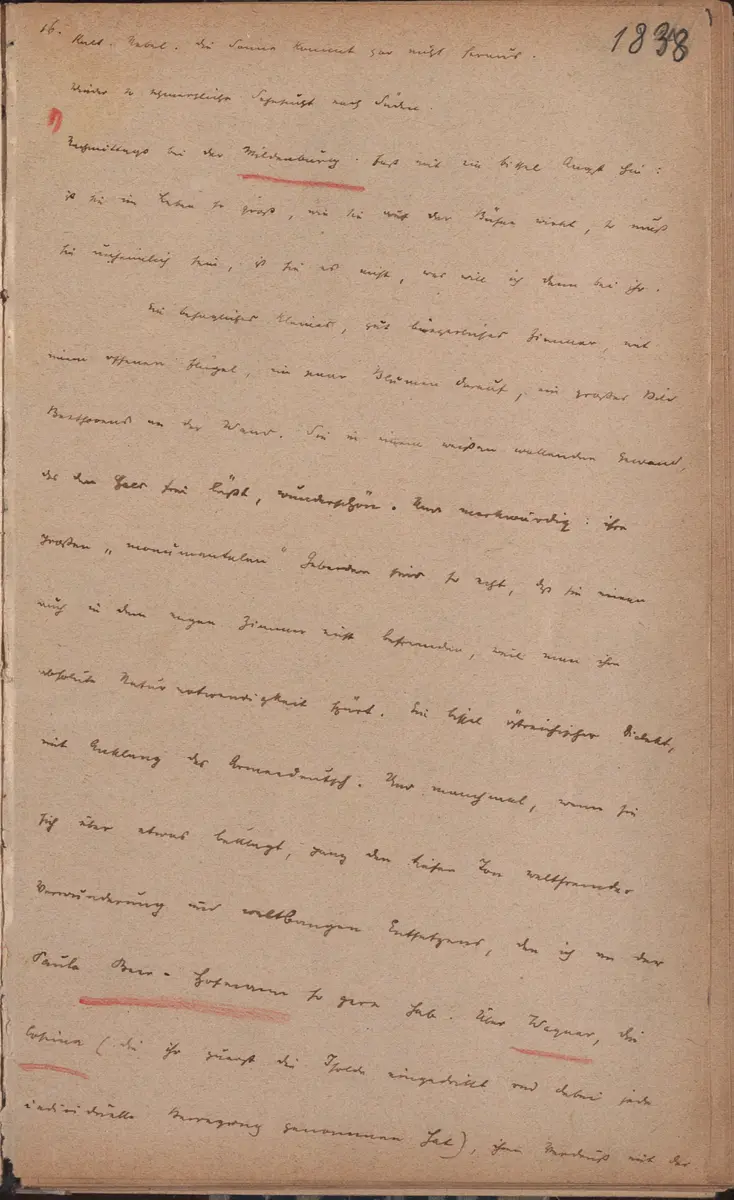 1838
16.
Kalt. Nebel. Die Sonne kommt gar nicht heraus.
Wieder so schmerzliche Sehnsucht nach Süden.
Nachmittags bei der Mildenburg. Fast mit ein bissel Angst hin:
ist sie im Leben so groß, wie sie auf der Bühne wirkt, so muß
sie unheimlich sein, ist sie es nicht, was will ich denn bei ihr.
Ein behagliches kleines, gut bürgerliches Zimmer, mit
einem offenen Flügel, ein paar Blumen darauf, ein großes Bild
Beethovens an der Wand. Sie in einem weißen wallenden Gewand,
das den Hals frei läßt, wunderschön. Nun merkwürdig: ihre
großen „monumentalen“ Geberden sind so echt, daß sie einen
auch in dem engen Zimmer nicht befremden, weil man ihre
absolute Naturnotwendigkeit spürt. Ein bissel östreichischer Dialekt,
mit Anklang des Armeedeutsch. Nur manchmal, wenn sie
sich über etwas beklagt, ganz den tiefen Ton weltfremder
Verwunderung und weltbangen Entsetzens, den ich an der
Paula Beer-Hofmann so gern hab. Über Wagner, die
Cosima (die ihr zuerst die Isolde eingedrillt und dabei jede
individuelle Bewegung genommen hat), ihren Verdruß mit der